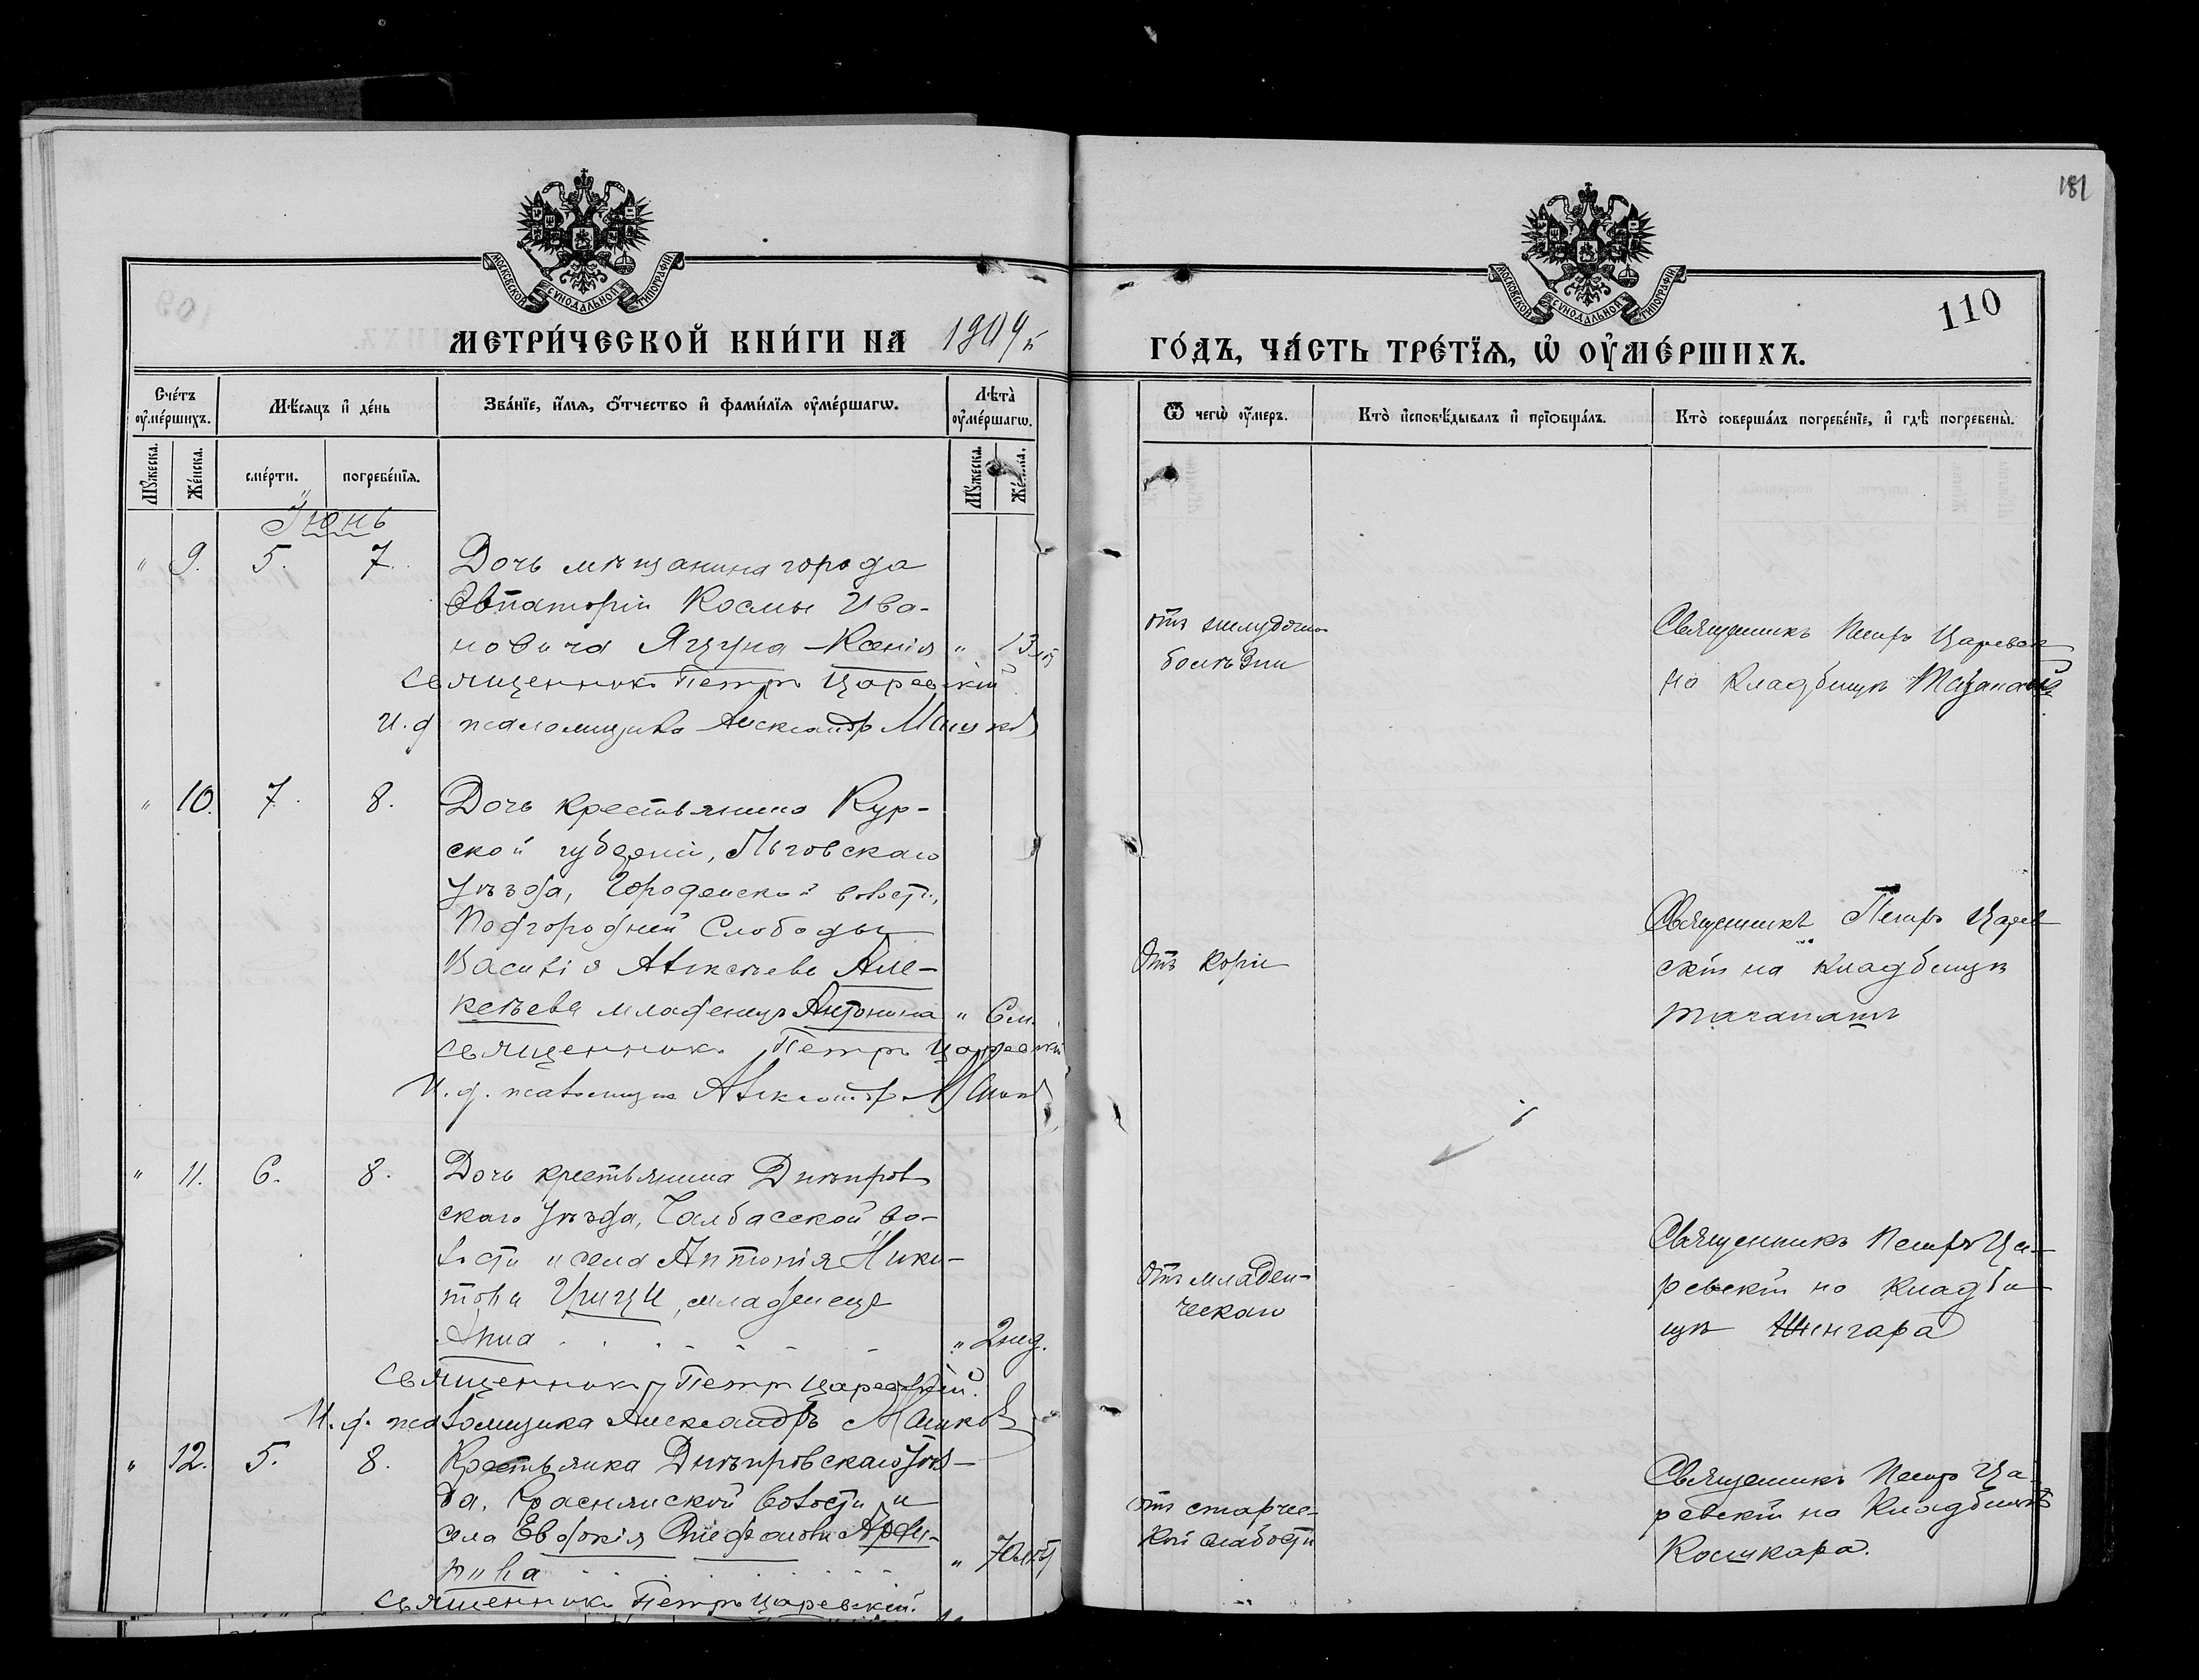 181
110
МОСКОВСКОЙ СѴНОДАЛЬНОЙ ТИПОГРАФІИ
МОСКОВСКОЙ СѴНОДАЛЬНОЙ ТИПОГРАФІИ
МЕТРИ́ЧЕСКОЙ КНИ́ГИ НА 1909
ГО́ДЪ, ЧА́СТЬ ТРЕ́ТІѦ, Ѡ҆ ОУ҆МЕ́РШИХЪ.
Сче́тъ оу҆ме́ршихъ.
Мꙋ́жеска.
Же́нска.
Мѣ́сѧцъ и҆ де́нь
сме́рти.
погребе́нїѧ.
Зва́нїе, и҆́мѧ, ѻ҆́тчество и҆ фами́лїѧ оу҆ме́ршагѡ.
Лѣ́та̀ оу҆ме́ршагѡ.
Мꙋ́жеска.
Ѿ чегѡ̀ оу҆́меръ.
Кто̀ и҆сповѣ́дывалъ и҆ прїѡбща́лъ.
Кто̀ соверша́лъ погребе́нїе, и҆ гдѣ̀ погребены̀.
Іюнь
" 9. 5. 7.
Дочь мѣщанина города
Евпаторіи Космы Ива-
новича Яцуна Ксенія " 13
Священникъ Петръ Царевскій
И. д. псаломщика Александръ
отъ желудочн.
болѣзни
Священникъ Петръ
на кладбищѣ
" 10. 7. 8.
Дочь крестьянина Кур-
ской губерніи, Льговскаго
уѣзда, Городенской волости,
Подгородней Слободы
Василія Алексѣева Але-
ксѣева младенецъ Антонина " 6 м.
Священникъ Петръ Царевскій
И. д. псаломщика Александръ
Отъ кори
Священникъ Петръ Царев
скій на кладбищѣ
" 11. 6. 8.
Дочь крестьянина Днѣпров
скаго уѣзда, Чалбасской во-
лости и села Антонія Ники-
това младенецъ
Анна " 2 нед.
Священникъ Петръ Царевскій.
И. д. псаломщика Александръ
Отъ младен-
ческаго
Священникъ Петръ Ца-
ревскій на кладби
щѣ
" 12. 5. 8.
Крестьянка Днѣпровскаго уѣз-
да, волости и
села Евдокія Стефанова
" 70 лѣтъ
Священникъ Петръ Царевскій.
отъ старчес-
кой слабости
Священникъ Петръ Ца-
ревскій на кладбищѣ
Кошкара.